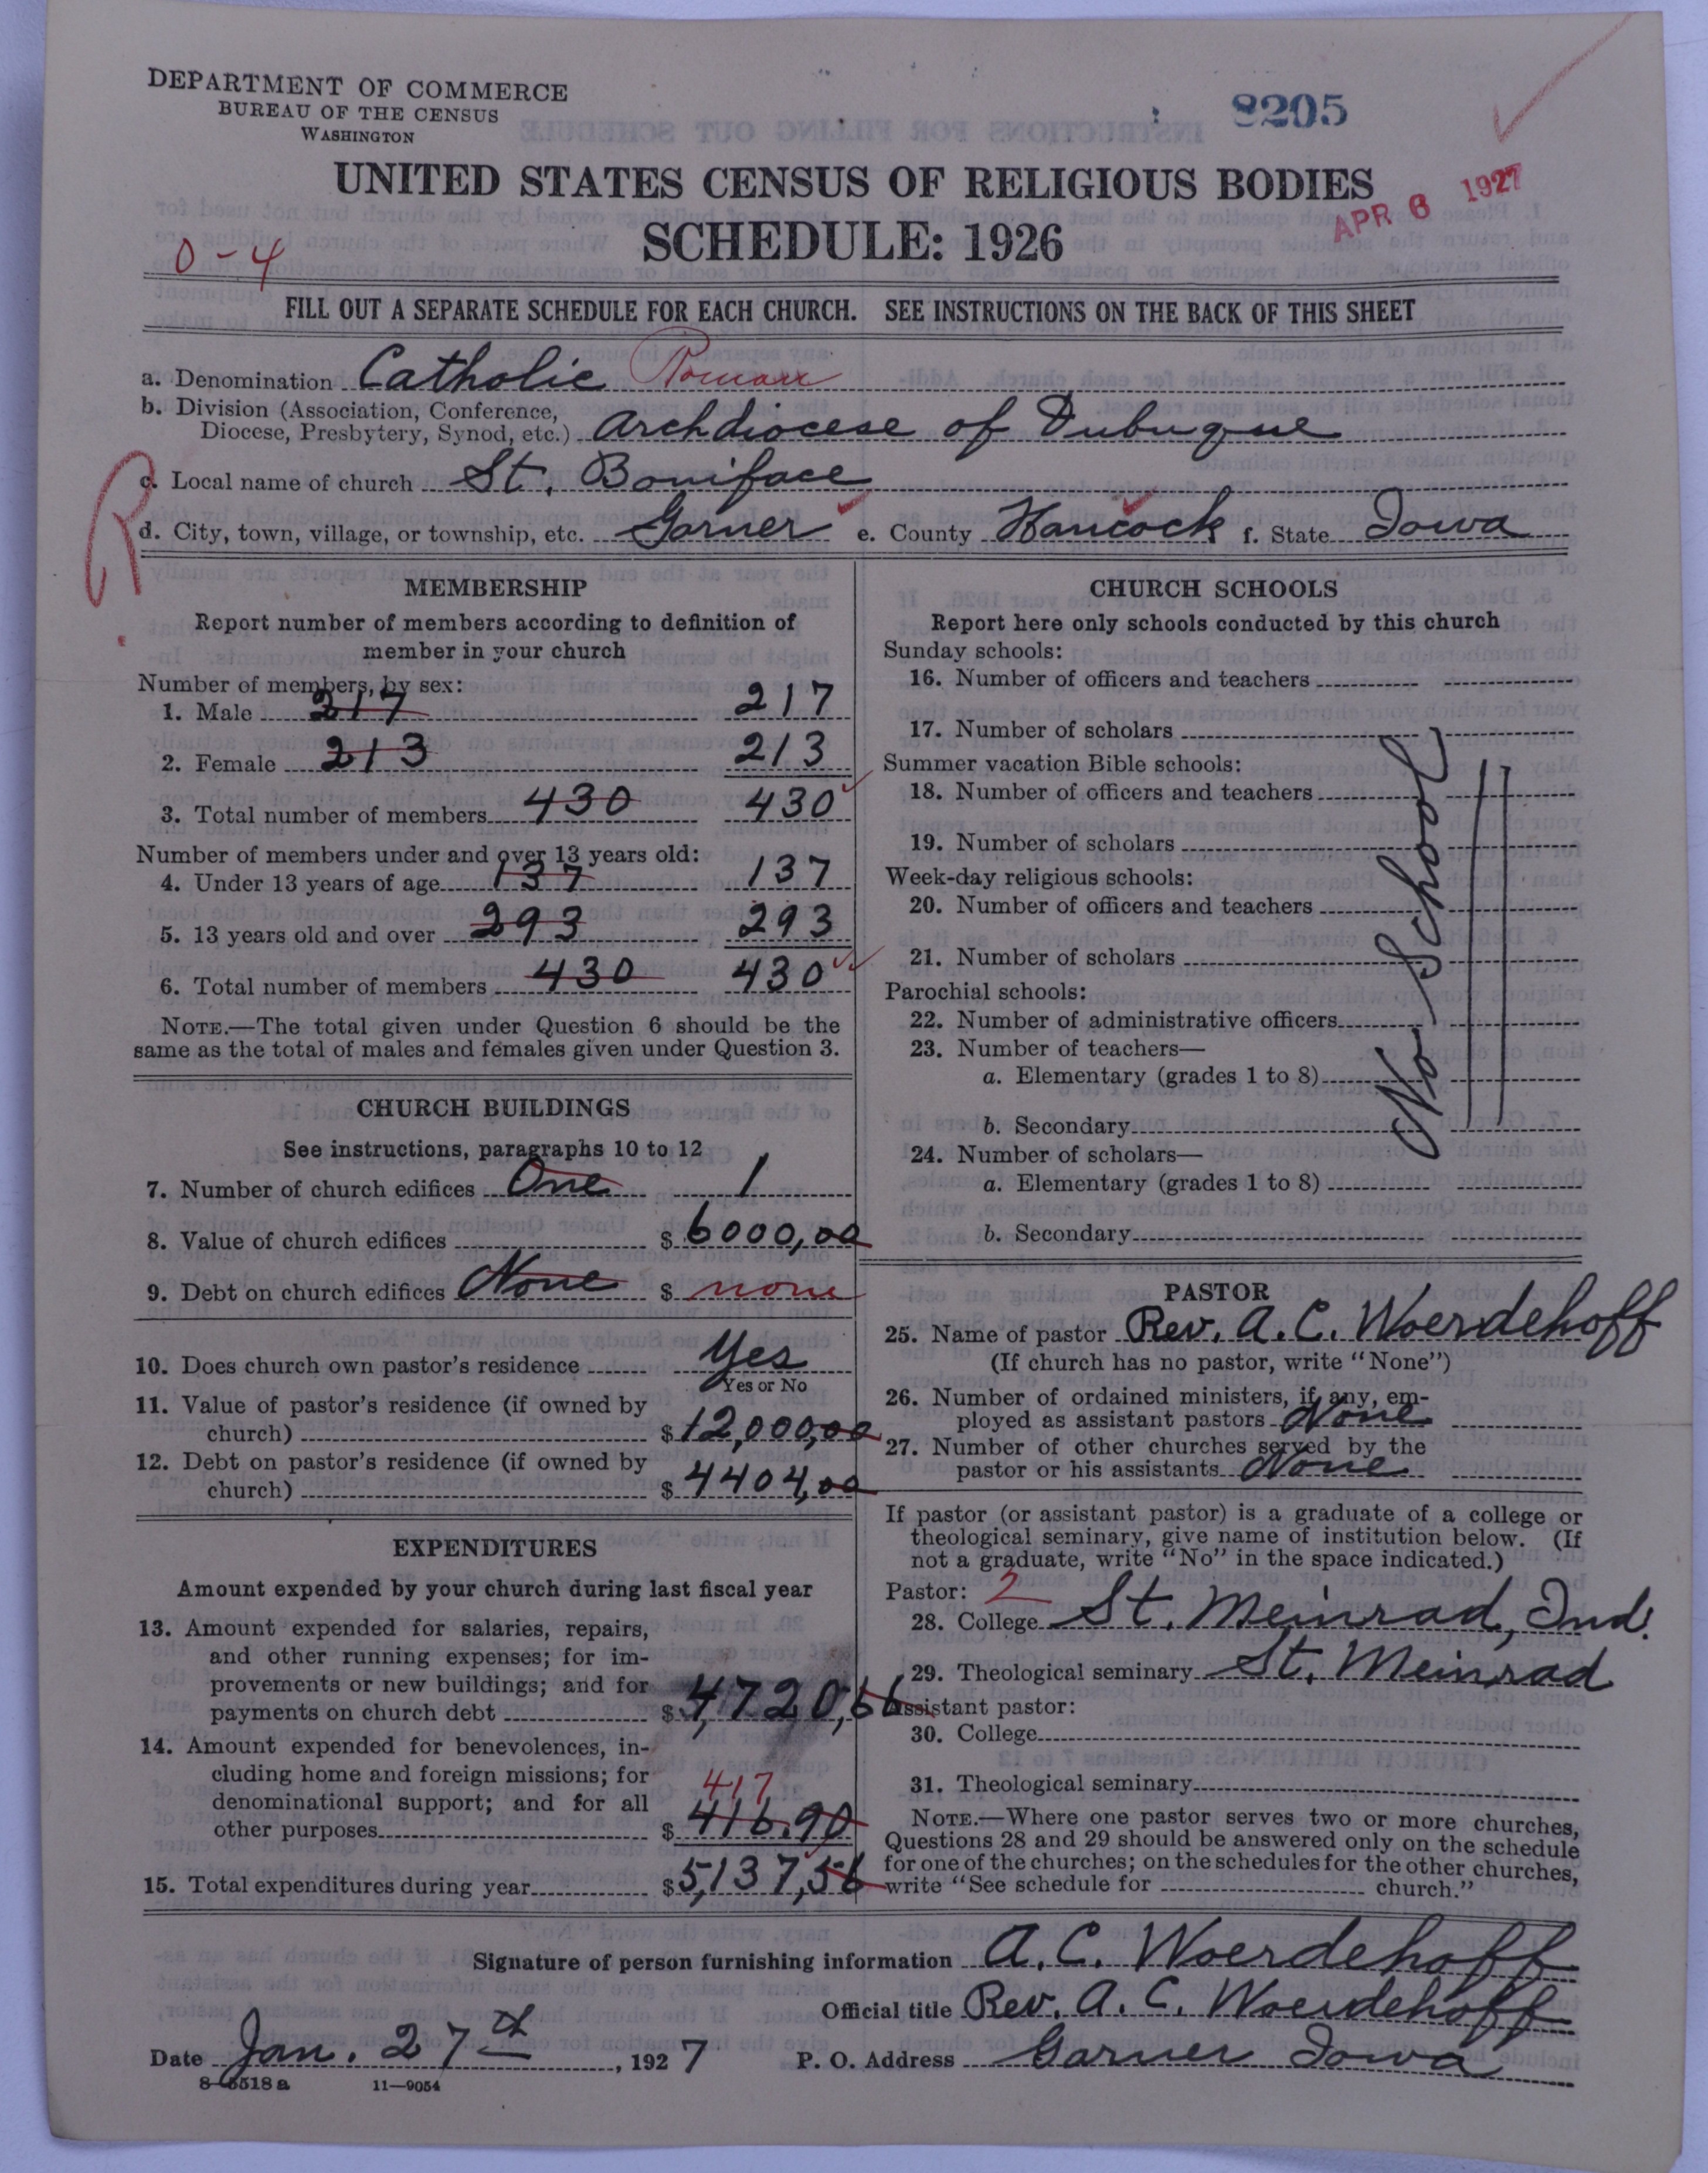 DEPARTMENT OF COMMERCE
BUREAU OF THE CENSUS
WASHINGTON
8205
UNITED STATES CENSUS OF RELIGIOUS BODIES
SCHEDULE: 1926
APR 6 1927
0-4
FILL OUT A SEPARATE SCHEDULE FOR EACH CHURCH. SEE INSTRUCTIONS ON THE BACK OF THIS SHEET
a. Denomination Catholic Roman
b. Division (Association, Conference,
Diocese, Presbytery, Synod, etc.) Archdiocese of Dubuque
c. Local name of church St. Boniface
d. City, town, village, or township, etc. Garner e. County Hancock f. State Iowa
R.
MEMBERSHIP
Report number of members according to definition of
member in your church
Number of members, by sex:
1. Male 217 217
2. Female 213 213
3. Total number of members 430 430
Number of members under and over 13 years old:
4. Under 13 years of age 137 137
5. 13 years old and over 293 293
6. Total number of members 430 430
NOTE.—The total given under Question 6 should be the
same as the total of males and females given under Question 3.
CHURCH BUILDINGS
See instructions, paragraphs 10 to 12
7. Number of church edifices One 1
8. Value of church edifices $ 6000,00
9. Debt on church edifices None $ none
10. Does church own pastor's residence Yes
Yes or No
11. Value of pastor's residence (if owned by
church) $ 12,000,00
12. Debt on pastor's residence (if owned by
church) $ 4404,00
EXPENDITURES
Amount expended by your church during last fiscal year
13. Amount expended for salaries, repairs,
and other running expenses; for im-
provements or new buildings; and for
payments on church debt $ 4,720,66
14. Amount expended for benevolences, in-
cluding home and foreign missions; for
417
denominational support; and for all
other purposes $ 416.90
15. Total expenditures during year $ 5,137,56
CHURCH SCHOOLS
Report here only schools conducted by this church
Sunday schools:
16. Number of officers and teachers
17. Number of scholars
Summer vacation Bible schools:
18. Number of officers and teachers
19. Number of scholars
Week-day religious schools:
20. Number of officers and teachers
21. Number of scholars
Parochial schools:
22. Number of administrative officers
23. Number of teachers—
a. Elementary (grades 1 to 8)
b. Secondary
24. Number of scholars—
a. Elementary (grades 1 to 8)
b. Secondary
No - School
PASTOR
25. Name of pastor Rev. A. C. Woerdehoff
(If church has no pastor, write "None")
26. Number of ordained ministers, if any, em-
ployed as assistant pastors None
27. Number of other churches served by the
pastor or his assistants None
If pastor (or assistant pastor) is a graduate of a college or
theological seminary, give name of institution below. (If
not a graduate, write "No" in the space indicated.)
Pastor: 2
28. College St. Meinrad, Ind.
29. Theological seminary St. Meinrad
Assistant pastor:
30. College
31. Theological seminary
NOTE.—Where one pastor serves two or more churches,
Questions 28 and 29 should be answered only on the schedule
for one of the churches; on the schedules for the other churches,
write "See schedule for church."
Signature of person furnishing information A. C. Woerdehoff
Official title Rev. A. C. Woerdehoff
Date Jan. 27th, 1927 P. O. Address Garner Iowa
8-5518a 11—9054